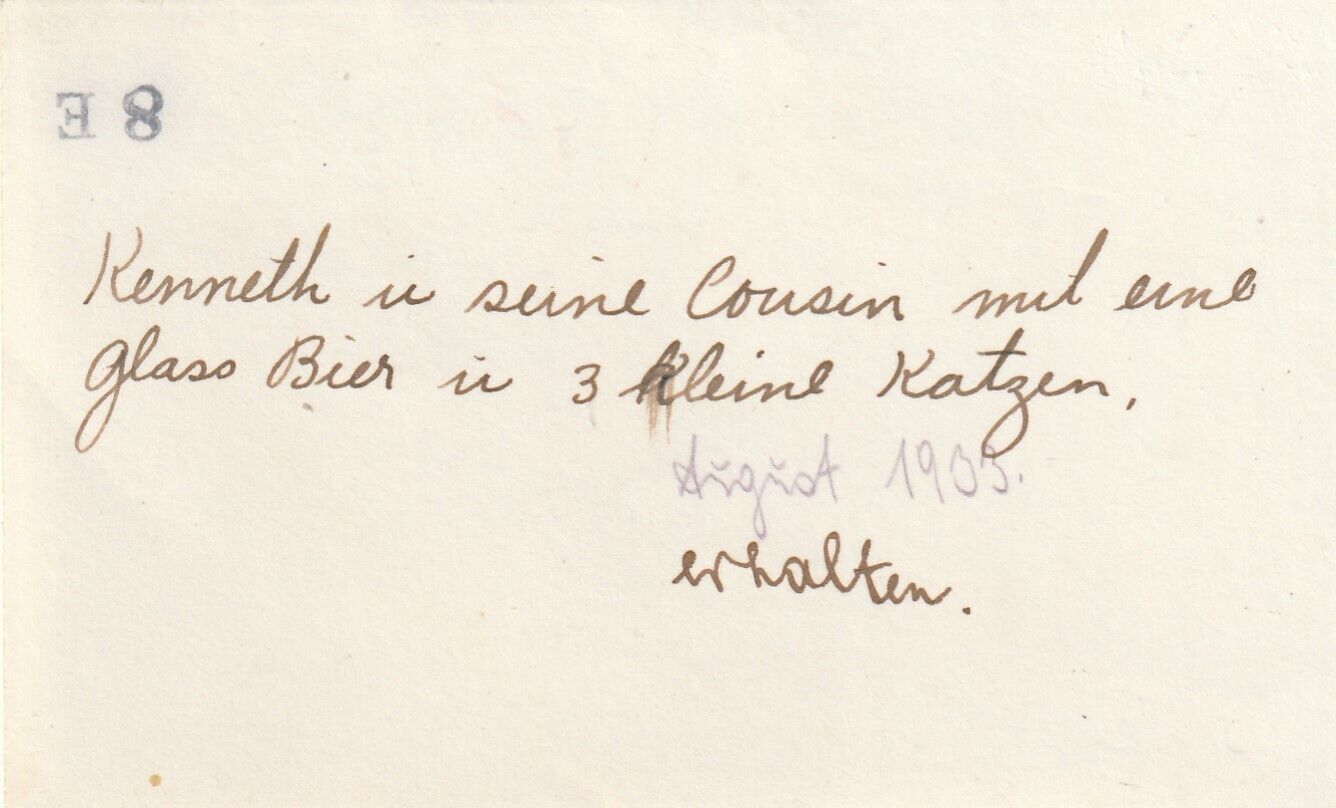 8 E
Kenneth u seine Cousin mit eine
glass Bier u 3 kleine Katzen.
August
erhalten.